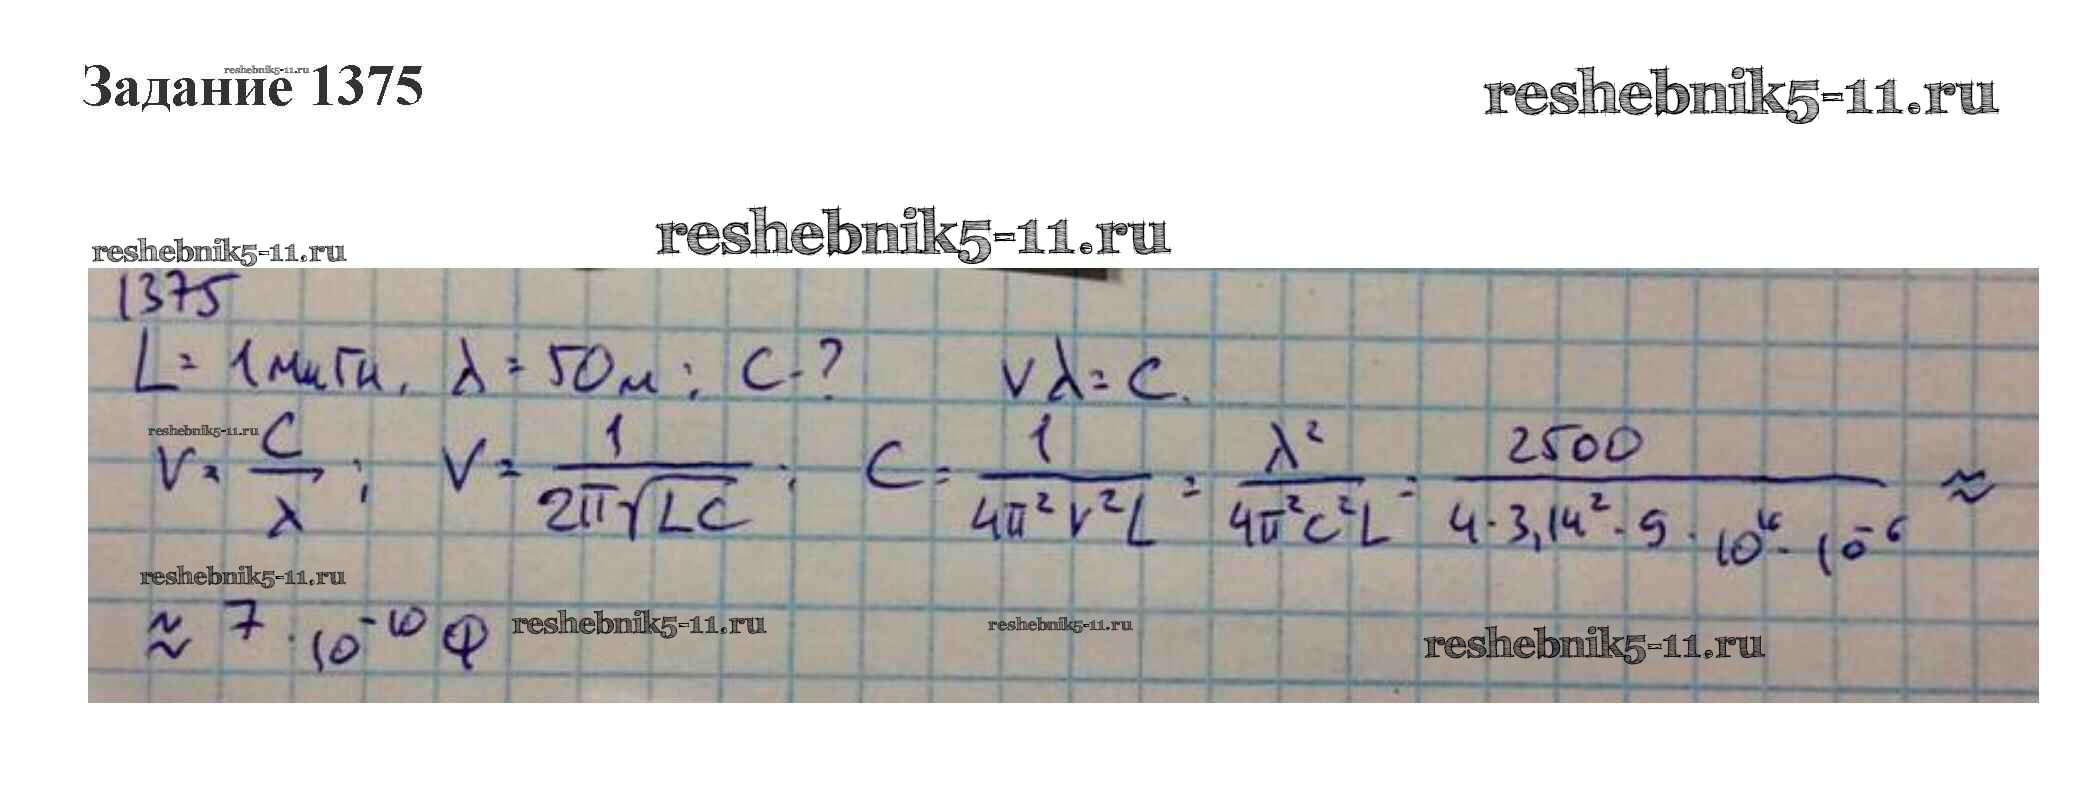 reshebnik5-11.ru
Задание 1375
reshebnik5-11.ru
reshebnik5-11.ru
reshebnik5-11.ru
1375
L = 1мкГн, λ = 50м; C-? νλ = c.
reshebnik5-11.ru
ν = c/λ; ν = 1/(2π√LC); C = 1/(4π²ν²L) = λ²/(4π²c²L) = 2500/(4·3,14²·9·10¹⁶·10⁻⁶) ≈
reshebnik5-11.ru
≈ 7·10⁻¹⁰ Ф
reshebnik5-11.ru
reshebnik5-11.ru
reshebnik5-11.ru